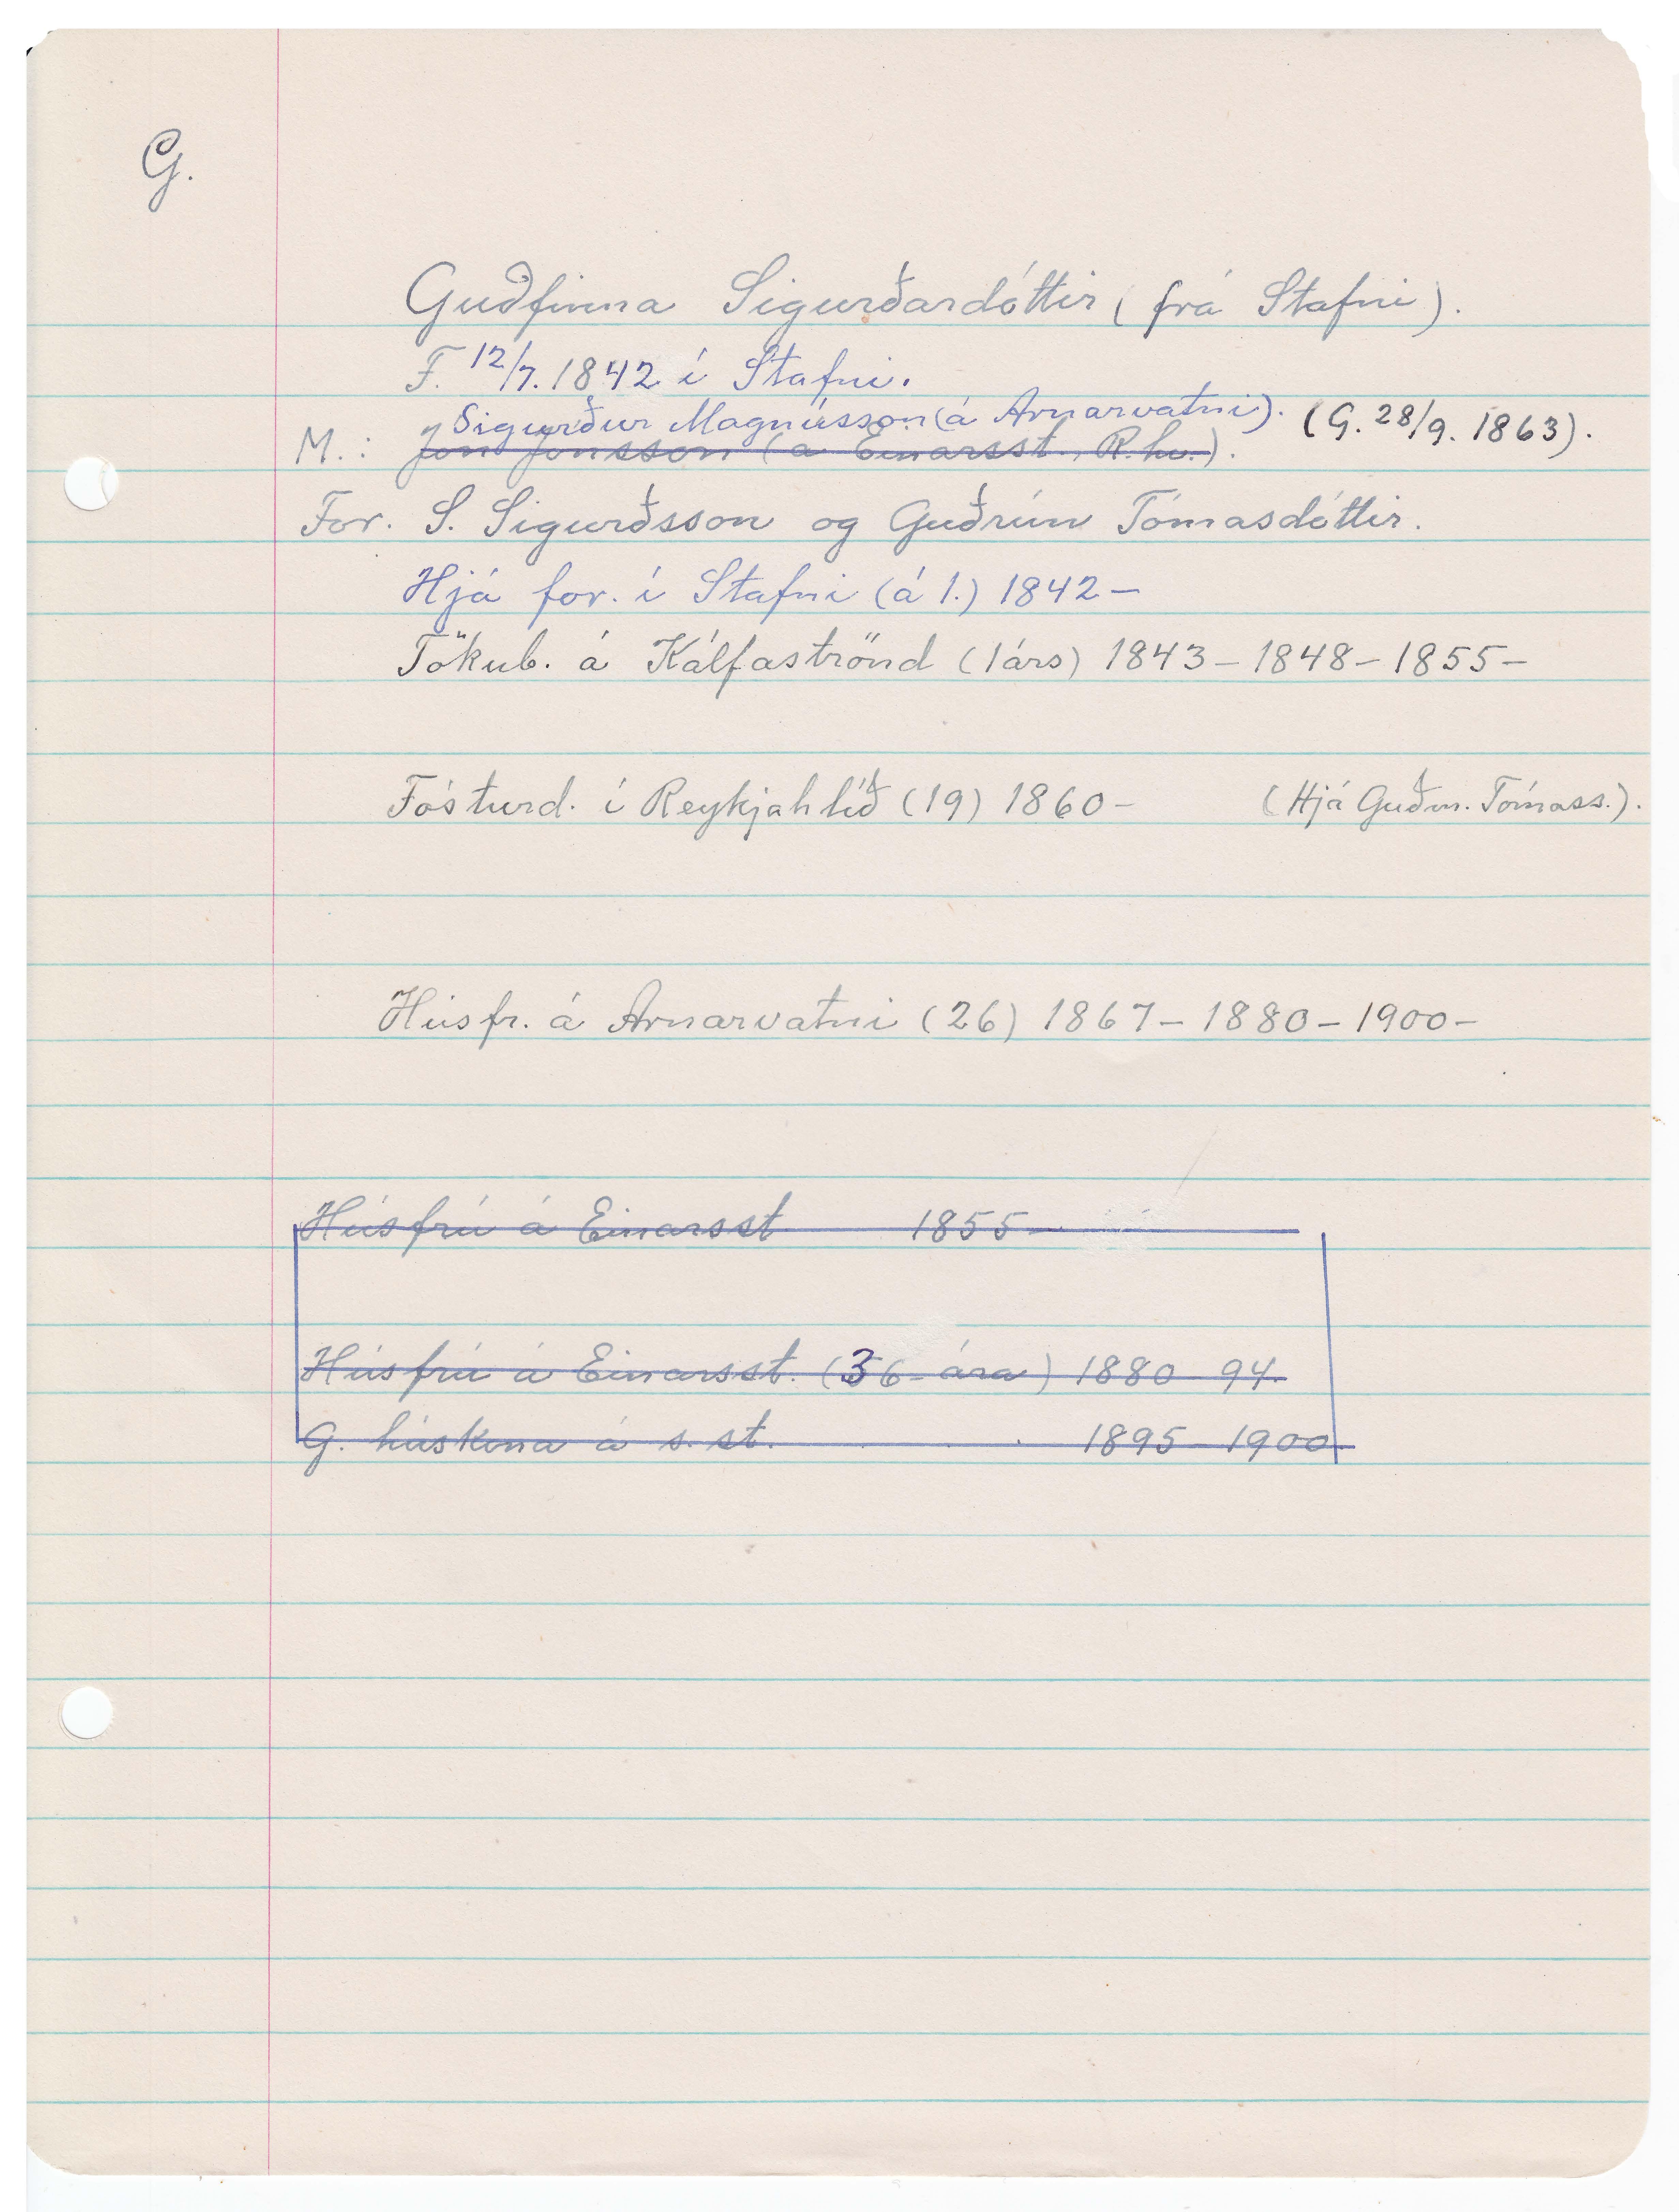 G.
Guðfinna Sigurðardóttir (frá Stafni).
F. 12/7. 1842 í Stafni.
Sigurður Magnússon (á Arnarvatni). (G. 28/9. 1863).
M.: Jón Jónsson (á Einarsst., R.hv.).
For. S. Sigurðsson og Guðrún Tómasdóttir.
Hjá for. í Stafni (á 1.) 1842 –
Tökub. á Kálfaströnd (1 árs) 1843 – 1848 – 1855 –
Fósturd. í Reykjahlíð (19) 1860 – (Hjá Guðm. Tómass.).
Húsfr. á Arnarvatni (26) 1867 – 1880 – 1900 –
Húsfrú á Einarsst 1855 –
Húsfrú á Einarsst. (36 ára) 1880 94.
G. húskona á s. st. 1895 – 1900